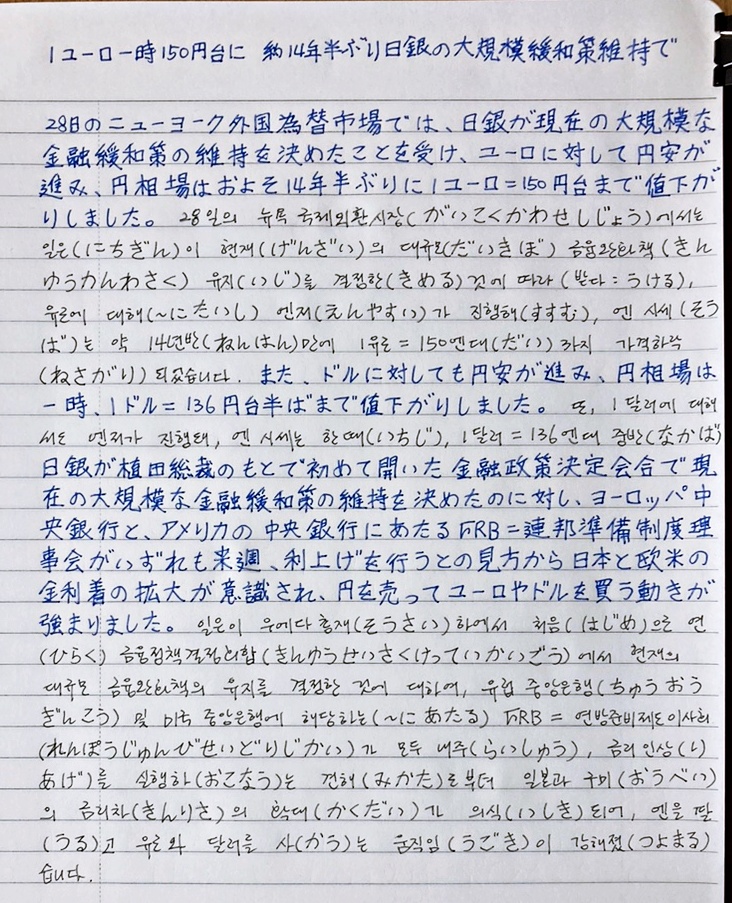 1ユーロ一時150円台に 約14年半ぶり日銀の大規模緩和策維持で
28日のニューヨーク外国為替市場では、日銀が現在の大規模な
金融緩和策の維持を決めたことを受け、ユーロに対して円安が
進み、円相場はおよそ14年半ぶりに1ユーロ=150円台まで値下が
りしました。 28일의 뉴욕 국제외환시장(がいこくかわせしじょう)에서는
일은(にちぎん)이 현재(げんざい)의 대규모(だいきぼ) 금융완화책(きん
ゆうかんわさく) 유지(いじ)를 결정한(きめる)것에 따라(받다:うける),
유로에 대해(~にたいし) 엔저(えんやすい)가 진행해(すすむ), 엔 시세(そう
ば)는 약 14년반(ねんはん)만에 1유로=150엔대(だい)까지 가격하락
(ねさがり)되었습니다. また、ドルに対しても円安が進み、円相場は
一時、1ドル=136円台半ばまで値下がりしました。 또, 1달러에 대해
서도 엔저가 진행돼, 엔 시세는 한때(いちじ), 1달러=136엔대 중반(なかば)
日銀が植田総裁のもとで初めて開いた金融政策決定会合で現
在の大規模な金融緩和策の維持を決めたのに対し、ヨーロッパ中
央銀行と、アメリカの中央銀行にあたるFRB=連邦準備制度理
事会がいずれも来週、利上げを行うとの見方から日本と欧米の
金利差の拡大が意識され、円を売ってユーロやドルを買う動きが
強まりました。 일은이 우에다 총재(そうさい)하에서 처음(はじめ)으로 연
(ひらく) 금융정책결정회합(きんゆうせいさくけっていかいごう)에서 현재의
대규모 금융완화책의 유지를 결정한 것에 대하여, 유럽 중앙은행(ちゅうおう
ぎんこう) 및 미국 중앙은행에 해당하는(~にあたる) FRB=연방준비제도이사회
(れんぽうじゅんびせいどりじかい)가 모두 내주(らいしゅう), 금리인상(り
あげ)를 실행하(おこなう)는 견해(みかた)로부터 일본과 구미(おうべい)
의 금리차(きんりさ)의 확대(かくだい)가 의식(いしき)되어, 엔을 팔
(うる)고 유로와 달러를 사(かう)는 움직임(うごき)이 강해졌(つよまる)
습니다.